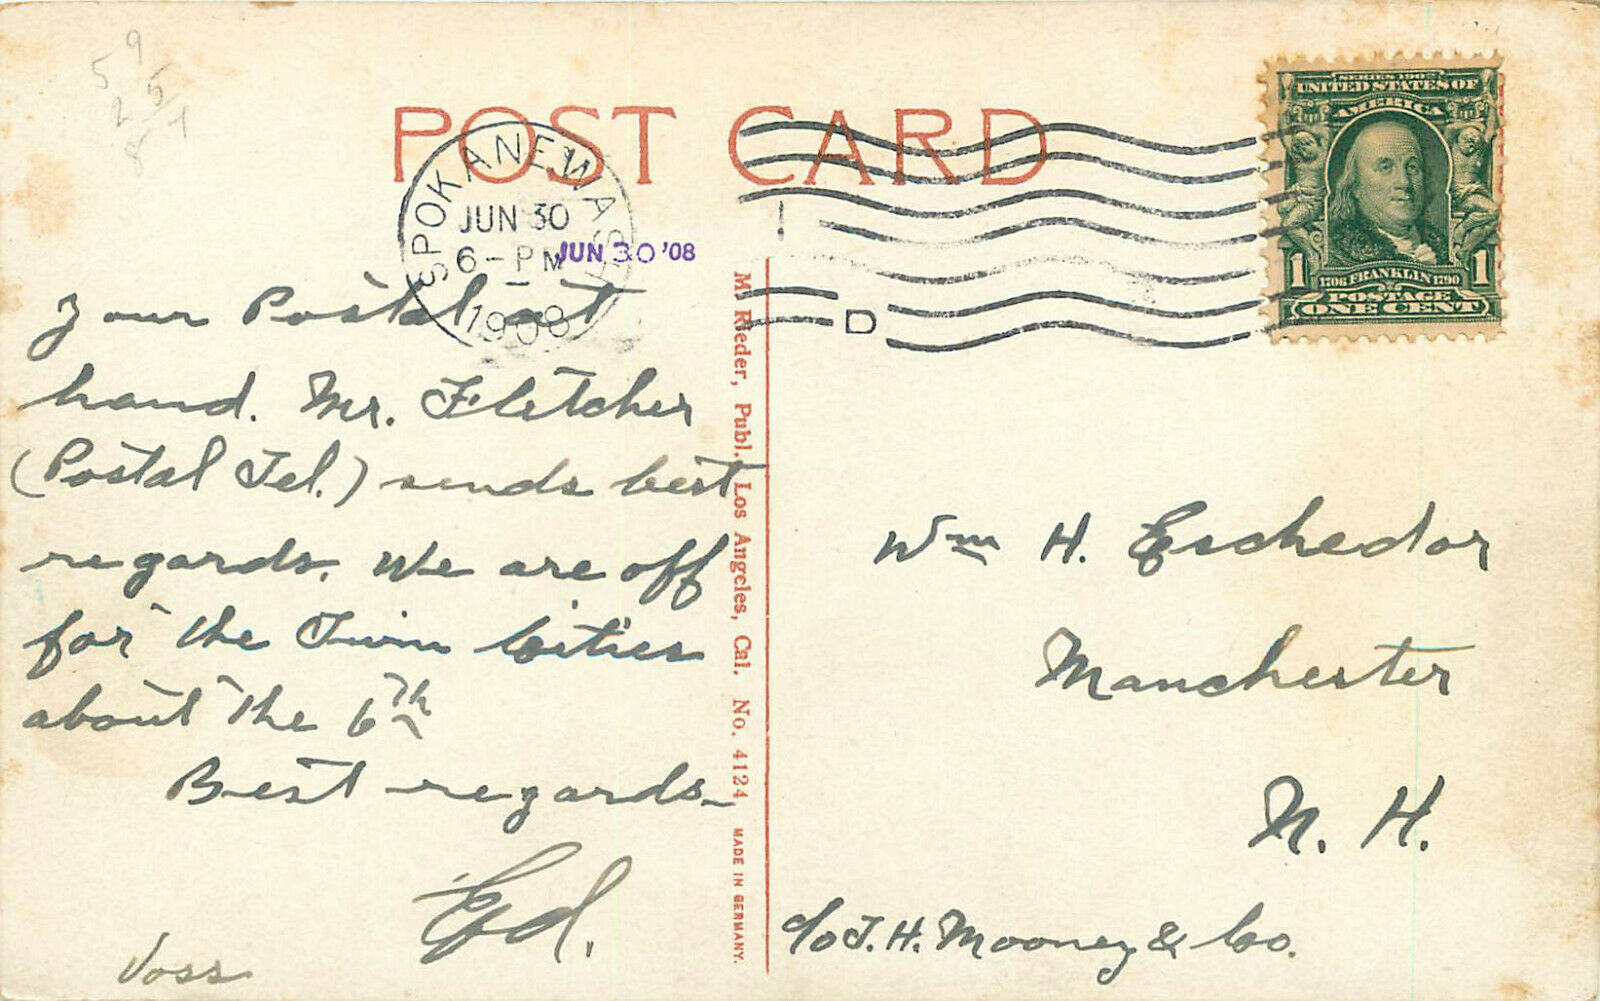 9
5
25/7
8
POST CARD
SPOKANE, WASH.
JUN 30
6-PM
1908
JUN 30 '08
D
SERIES 1902
UNITED STATES OF
AMERICA
1 1
1706 FRANKLIN 1790
POSTAGE
ONE CENT
Your Postal at
hand. Mr. Fletcher
(Postal Tel.) sends best
regards. We are off
for the Twin Cities
about the 6th
Best regards
Ed.
Voss
M. Rieder, Publ., Los Angeles, Cal. No. 4124 MADE IN GERMANY.
Wm H. Eschedor
Manchester
N. H.
c/o J. H. Mooney & Co.